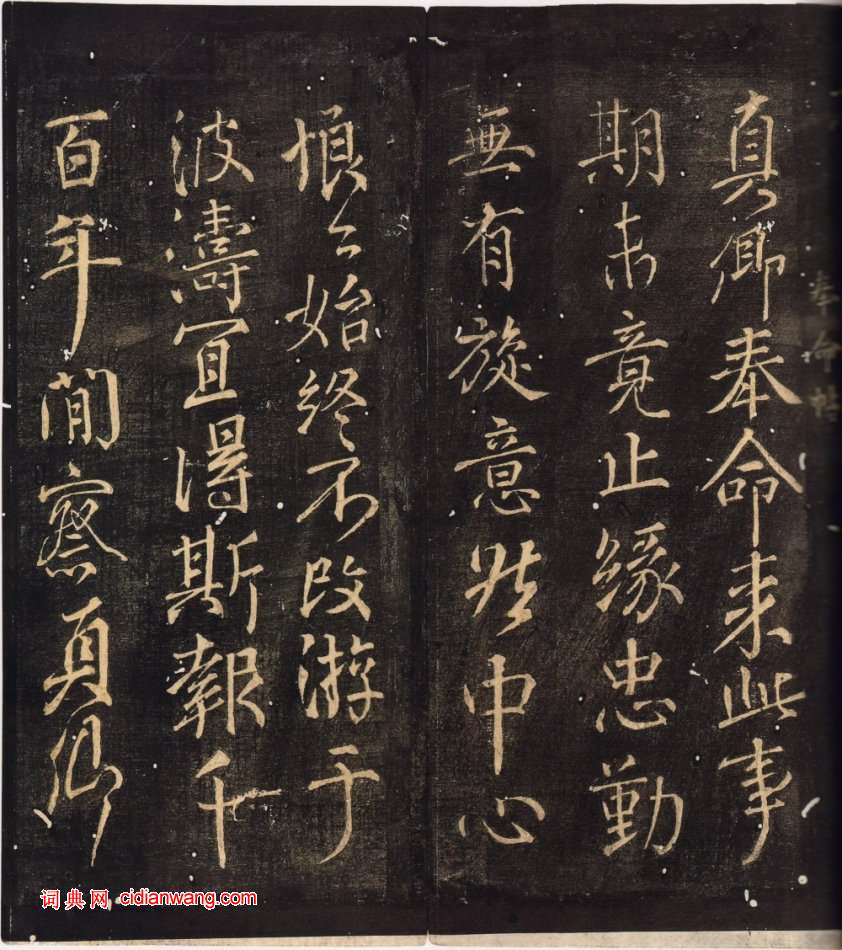 奉命帖
真卿奉命来此事
期未竟止緣忠勤
無有旋意然中心
恨恨始終不改游于
波濤宜得斯報千
百年間察真卿
词典网 cidianwang.com